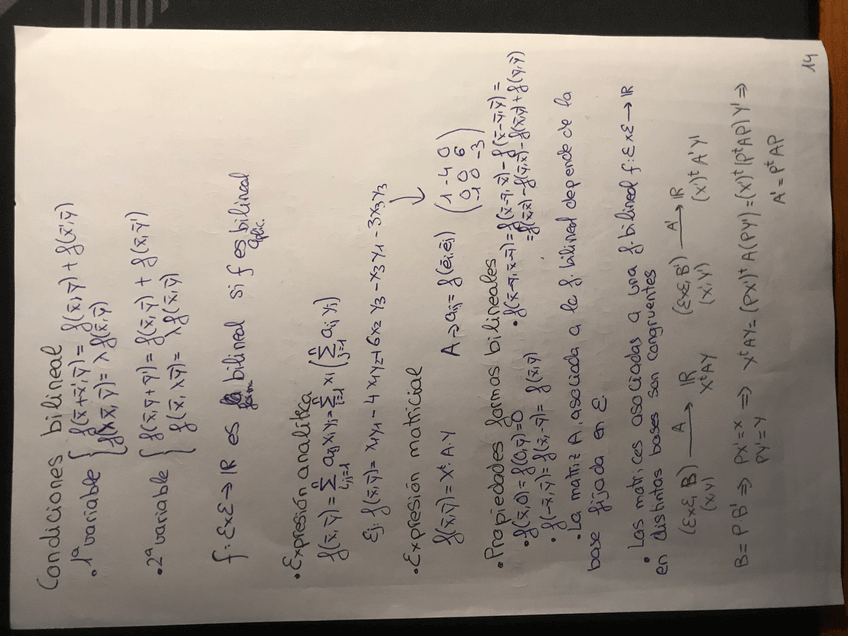 Condiciones bilineal
• 1ª variable { f(x̄+x̄',ȳ) = f(x̄,ȳ) + f(x̄',ȳ)
f(λx̄,ȳ) = λ f(x̄,ȳ)
• 2ª variable { f(x̄,ȳ+ȳ') = f(x̄,ȳ) + f(x̄,ȳ')
f(x̄,λȳ) = λ f(x̄,ȳ)
f: ExE → IR es bilineal si f es bilineal
form. aplic.
• Expresión analítica
f(x̄,ȳ) = Σⁿ i,j=1 aij xi yj = Σⁿ i=1 xi (Σⁿ j=1 aij yj)
Ej: f(x̄,ȳ) = x1y1 - 4x1y2 + 6x2y3 - x3y1 - 3x3y3
• Expresión matricial
f(x̄,ȳ) = Xᵗ·A·Y A → aij = f(ēi,ēj) (1 -4 0
0 0 6
-1 0 -3)
• Propiedades formas bilineales
• f(x̄,0) = f(0,ȳ) = 0 • f(x̄-ȳ,x̄-ȳ) = f(x̄-ȳ,x̄) - f(x̄-ȳ,ȳ) =
• f(-x̄,ȳ) = f(x̄,-ȳ) = -f(x̄,ȳ) = f(x̄,x̄) - f(ȳ,x̄) - f(x̄,ȳ) + f(ȳ,ȳ)
• La matriz A, asociada a la f. bilineal depende de la
base fijada en E.
• Las matrices asociadas a una f. bilineal f: ExE → IR
en distintas bases son congruentes
(ExE, B) A→ IR (ExE, B') A'→ IR
(x,y) XᵗAY (x',y') (x')ᵗA'Y'
B = PB' ⇒ PX' = X ⇒ XᵗAY = (PX')ᵗA(PY') = (X')ᵗ(PᵗAP)Y' ⇒
PY' = Y A' = PᵗAP
14